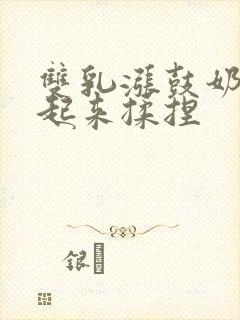 雙乳漲鼓奶
起来揉捏
银